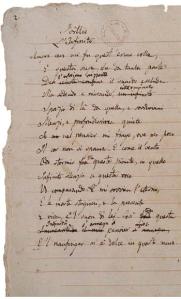 Idillio
L'Infinito
Sempre caro mi fu quest'ermo colle
E questa siepe che da tanta parte
il guardo esclude
Ma sedendo e mirando
Spazio di là da quella, e sovrumani
Silenzi, e profondissima quiete
Io nel pensier mi fingo, ove per poco
Il cor non si spaura. E come il vento
Odo stormir tra queste piante, io quello
Infinito silenzio a questa voce
Vo comparando: e mi sovvien l'eterno,
E le morte stagioni, e la presente
E viva, e 'l suon di lei. Così questa
il pensier mio
E 'l naufragar m'è dolce in questo mare